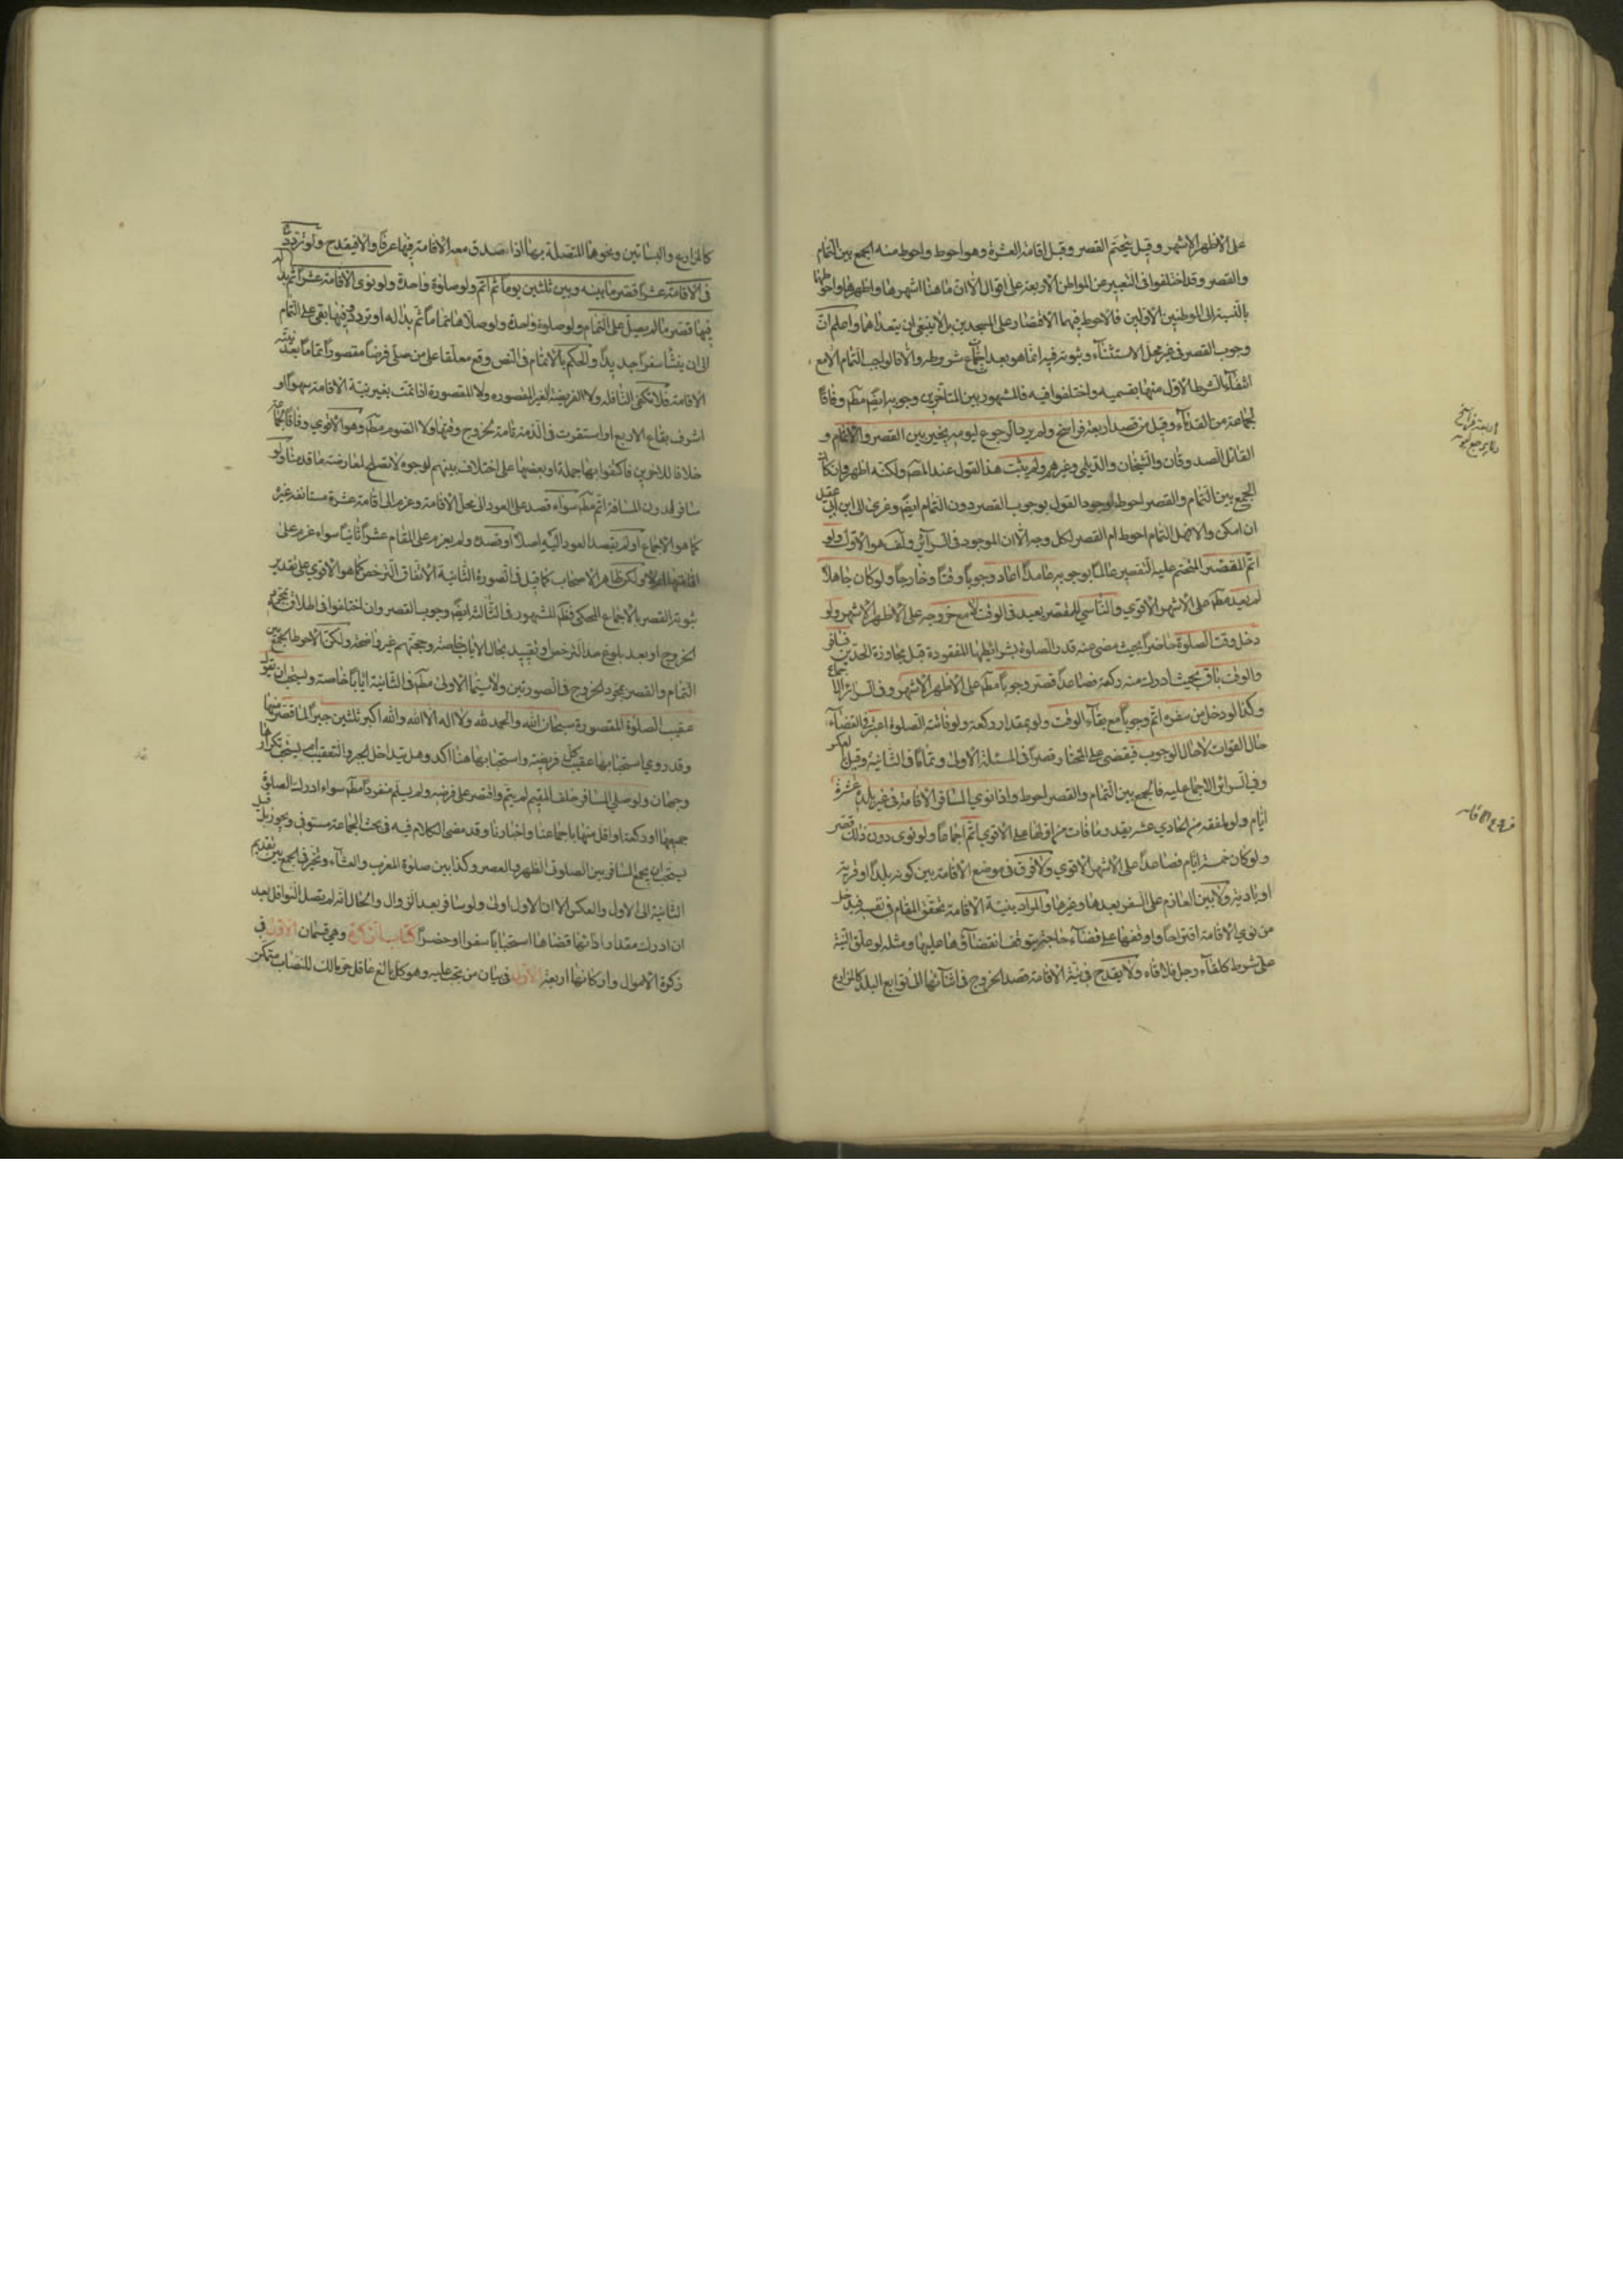 على الأظهر الأشهر وقيل يتحتم القصر وقيل اقامة العشرة وهو احوط واحوط منه الجمع بين التمام
والقصر وقد اختلفوا فى التعبير عن المواطن الأربعة على اقوال الا ان ما هنا اشهرها واظهرها واحوطها
بالنسبة الى الموطنين الأولين فالأحوط فيهما الاقتصار على المسجدين بل لا ينبغى ان يتعداهما واعلم ان
وجوب القصر فى غير محل الاستثناء وثبوته فيه انما هو بعد اجتماع شروطه والا فالواجب التمام الا مع
انتفاء الشرط الأول منها بقسميه واختلفوا فيه فالمشهور بين المتأخرين وجوبه ايضًا مطم وفاقًا
لجماعة من القدماء وقيل من قصد اربعة فراسخ ولم يرد الرجوع ليومه يخير بين القصر والاتمام و
القائل الصدوقان والشيخان والديلمى وغيرهم ولم يثبت هذا القول عند المصـ ولكنه اظهر وان كان
الجمع بين التمام والقصر احوط لوجود القول بوجوب القصر دون التمام ايضًا وعزى الى ابن ابى عقيل
ان امكن والا فهل التمام احوط ام القصر لكل وجه الا ان الموجود فى السرائر هو الأول ولو
اتم المقصر المتحتم عليه التقصير عالمًا بوجوبه عامدًا اعاد وجوبًا وقتًا وخارجًا ولو كان جاهلًا
لم يعد مطم على الأشهر الأقوى والناسى للمقصر يعيد فى الوقت لا مع خروجه على الأظهر الأشهر ولو
دخل وقت الصلوة حاضرًا بحيث مضى عنه قدر الصلوة بشرائطها المفقودة قبل مجاوزة الحدين فسافر
والوقت باق بحيث ادرك منه ركعة فصاعدًا قصر وجوبًا مطم على الأظهر الأشهر وفى السرائر اجماع
وكذا لو دخل من سفره اتم وجوبًا مع بقاء الوقت ولو بمقدار ركعة ولو فاتته الصلوة اعتبر فى القضاء
حال الفوات لا حال الوجوب فيقضى على المختار قصرًا فى المسئلة الأولى وتمامًا فى الثانية وقيل بالعكس
وفى السرائر الاجماع عليه فالجمع بين التمام والقصر احوط واذا نوى المسافر الاقامة فى غير بلده عشرة
ايام ولو ملفقه من الحادى عشر بقدر ما فات من اولها على الأقوى اتم اجماعًا ولو نوى دون ذلك قصر
ولو كان خمسة ايام فصاعدًا على الأشهر الأقوى ولا فرق فى موضع الاقامة بين كونه بلدًا او قرية
او بادية ولا بين العازم على السفر بعدها وغيرها والمراد بنية الاقامة تحقق المقام فى نفسه فيدخل
من نوى الاقامة اقتراحًا واوقفها على قضاء حاجة يتوقف انقضاؤها عليها ومثله لو علق النية
على شرط كلقاء رجل فلاقاه ولا يقدح فى نية الاقامة قصد الخروج فى اثنائها الى توابع البلد كالمزارع
اربعة فراسخ
فروع الاقامة
كالمزارع والبساتين ونحوها المتصلة بها اذا صدق معه الاقامة فيها عرفًا والا فيقدح ولو تردد
فى الاقامة عشرًا قصر ما بينه وبين ثلثين يومًا ثم اتم ولو صلوة واحدة ولو نوى الاقامة عشرًا ثم بدا له
فيها قصر ما لم يصل على التمام ولو صلوة واحدة ولو صلاها تمامًا ثم بدا له او تردد فيها بقى على التمام
الى ان ينشأ سفرًا جديدًا والحكم بالاتمام فى النص وقع معلقا على من صلى فرضًا مقصورًا تمامًا بعد نية
الاقامة فلا تكفى النافلة ولا الفريضة الغير المقصورة ولا المقصورة اذا تمت بغير نية الاقامة سهوًا او
لشرف بقاع الاربع او استقرت فى الذمة تامة لخروج وقتها ولا الصوم مطم وهو الأقوى وفاقًا لجماعة
خلافا لاخرين فاكتفوا بها جملة او بعضها على اختلاف بينهم لوجوه لا تصلح لمعارضة ما قدمنا ولو
سافر لدون المسافة اتم مطم سواء قصد على العود الى محل الاقامة وعزم الى اقامة عشرة مستانفة غيره
كما هو الاجماع او لم يقصد العود اليه اصلًا او قصده ولم يعزم على المقام عشرًا ثانيًا سواء عزم على
ولكن ظاهر الأصحاب كما قيل فى الصورة الثانية الاتفاق الترخص كما هو الأقوى على تقدير
ثبوته القصر بالاجماع المحكى فظم المشهور فى الثالثة ايضًا وجوب القصر وان اختلفوا فى اطلاقه بمجرد
الخروج او بعد بلوغ حد الترخص او تقييد بحال الاياب خاصة وحجتهم غير واضحة ولكن الأحوط الجمع بين
التمام والقصر بمجرد الخروج فى الصورتين ولا سيما الأولى مطم فى الثانية ايابًا خاصة ويستحب ان يقول
عقيب الصلوة المقصورة سبحان الله والحمد لله ولا اله الا الله والله اكبر ثلثين جبرًا لما قصر منها
وقد روى استحبابها عقيب كل فريضة واستحبابها هنا اكد وهل يتداخل الجبر والتعقيب ام يستحب تكرارها
وجهان ولو صلى المسافر خلف المقيم لم يتم واقتصر على فرضه ولم يسلم منفردًا مطم سواء ادرك الصلوة
جميعها او ركعة او اقل منها باجماعنا واخبارنا وقد مضى الكلام فيه فى بحث الجماعة مستوفى ويجوز بل قيل
يستحب ان يجمع المسافر بين الصلوتى الظهر والعصر وكذا بين صلوة المغرب والعشاء وتخير فى الجمع بين تقديم
الثانية الى الاول والعكس الا ان الاول اولى ولو سافر بعد الزوال والحال انه لم يصل النوافل بعد
ان ادرك مقدار اذائها قضاها استحبابًا سفرًا او حضرًا كتاب الزكوة وهى قسمان الاول فى
زكوة الاموال واركانها اربعة الاول فى بيان من تجب عليه وهو كل بالغ عاقل حر مالك للنصاب متمكن